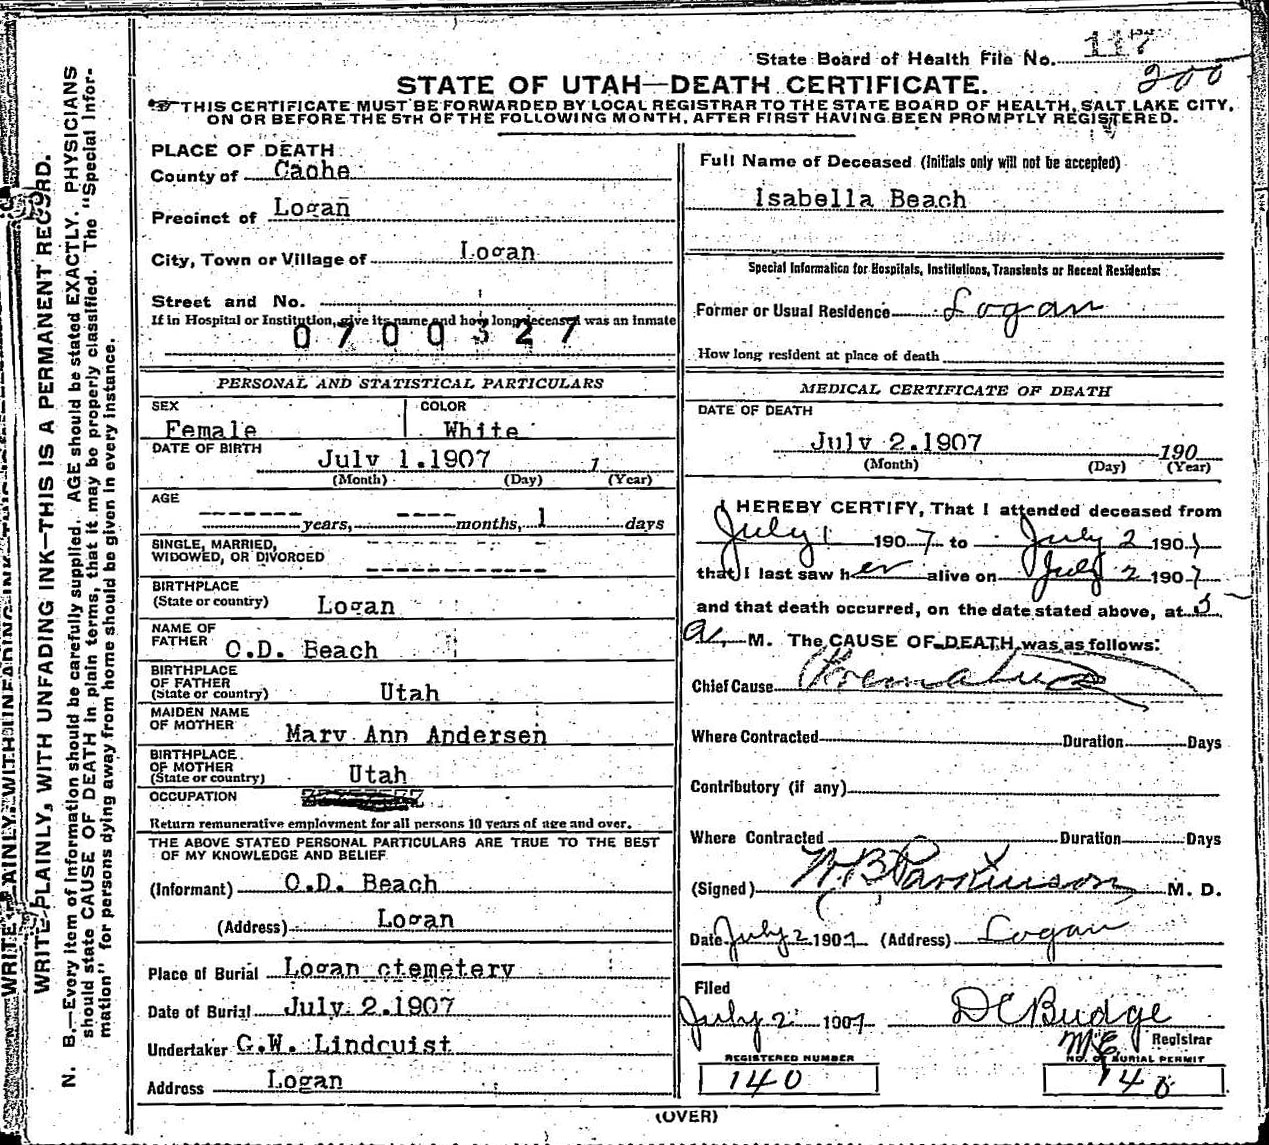 State Board of Health File No. 117
200
STATE OF UTAH—DEATH CERTIFICATE.
THIS CERTIFICATE MUST BE FORWARDED BY LOCAL REGISTRAR TO THE STATE BOARD OF HEALTH, SALT LAKE CITY,
ON OR BEFORE THE 5TH OF THE FOLLOWING MONTH, AFTER FIRST HAVING BEEN PROMPTLY REGISTERED.
PLACE OF DEATH
County of Cache
Precinct of Logan
City, Town or Village of Logan
Street and No.
If in Hospital or Institution, give its name and how long deceased was an inmate
0700327
PERSONAL AND STATISTICAL PARTICULARS
SEX COLOR
Female White
DATE OF BIRTH
July 1.1907 1
(Month) (Day) (Year)
AGE
------- years, ---- months, 1 days
SINGLE, MARRIED,
WIDOWED, OR DIVORCED
BIRTHPLACE
(State or country) Logan
NAME OF
FATHER O.D. Beach
BIRTHPLACE
OF FATHER
(State or country) Utah
MAIDEN NAME
OF MOTHER
Mary Ann Andersen
BIRTHPLACE
OF MOTHER
(State or country) Utah
OCCUPATION
Return remunerative employment for all persons 10 years of age and over.
THE ABOVE STATED PERSONAL PARTICULARS ARE TRUE TO THE BEST
OF MY KNOWLEDGE AND BELIEF
(Informant) O.D. Beach
(Address) Logan
Place of Burial Logan ctemetery
Date of Burial July 2.1907
Undertaker C.W. Lindquist
Address Logan
Full Name of Deceased (Initials only will not be accepted)
Isabella Beach
Special Information for Hospitals, Institutions, Transients or Recent Residents:
Former or Usual Residence Logan
How long resident at place of death
MEDICAL CERTIFICATE OF DEATH
DATE OF DEATH
July 2.1907 190
(Month) (Day) (Year)
I HEREBY CERTIFY, That I attended deceased from
July 1 1907 to July 2 1907
that I last saw her alive on July 2 1907
and that death occurred, on the date stated above, at 5
a. M. The CAUSE OF DEATH was as follows:
Chief Cause Premature
Where Contracted Duration Days
Contributory (if any)
Where Contracted Duration Days
(Signed) W.B. Parkinson M. D.
Date July 2 1907 (Address) Logan
Filed
July 2 1907 D C Budge
Registrar
REGISTERED NUMBER
140
NO. OF BURIAL PERMIT
140
(OVER)
WRITE PLAINLY, WITH UNFADING INK—THIS IS A PERMANENT RECORD.
N. B.—Every item of information should be carefully supplied. AGE should be stated EXACTLY. PHYSICIANS
should state CAUSE OF DEATH in plain terms, that it may be properly classified. The "Special Infor-
mation" for persons dying away from home should be given in every instance.